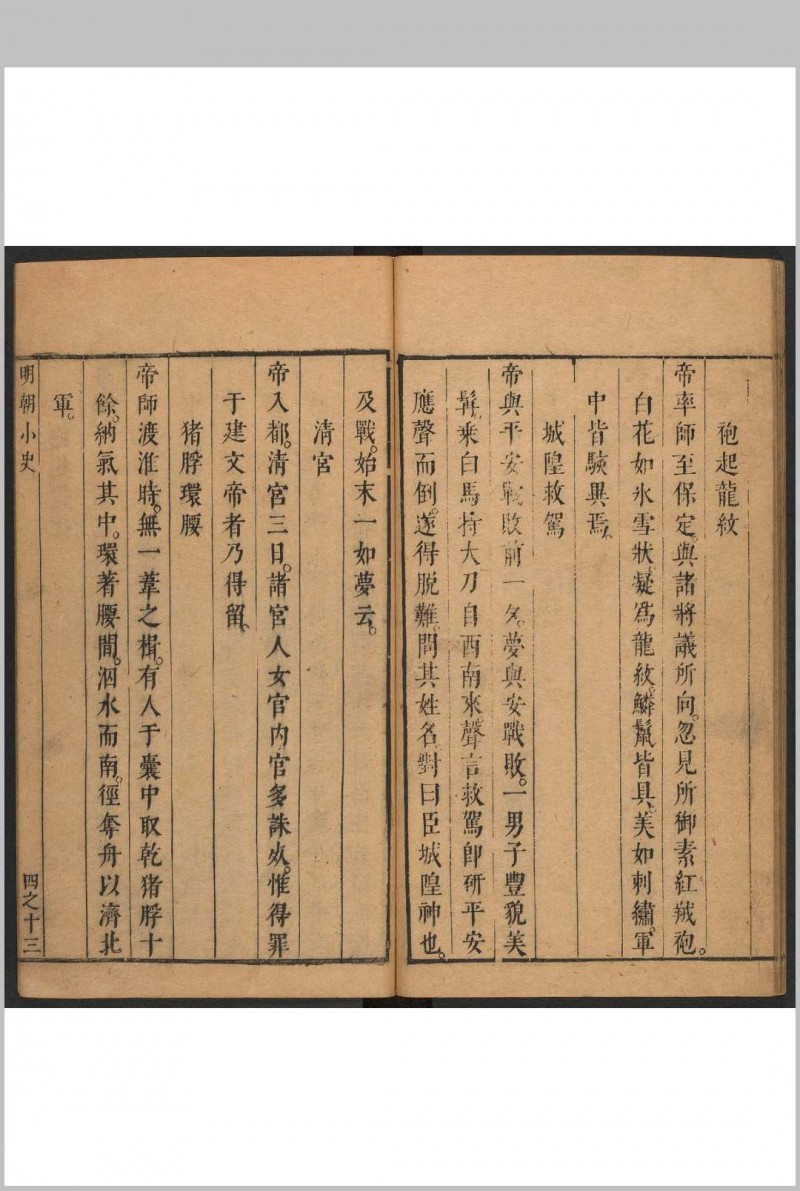 袍起龍紋
帝率師至保定。與諸將議所向。忽見所御素紅絨袍。
白花如氷雪狀。凝爲龍紋。鱗鬛皆具。美如刺繡。軍
中皆駭異焉。
城隍救駕
帝與平安戰敗前一夕。夢與安戰敗。一男子豐貌美
髯。乘白馬持大刀自西南來。聲言救駕卽斫平安
應聲而倒。遂得脫難。問其姓名。對曰臣城隍神也。
及戰。始末一如夢云。
清宮
帝入都。清宮三日。諸宮人女官內官多誅死。惟得罪
于建文帝者乃得留。
猪脬環腰
帝師渡淮時。無一葦之楫。有人于囊中取乾猪脬十
餘。納氣其中。環著腰間。泅水而南。徑奪舟以濟北
軍。
明朝小史
四之十三